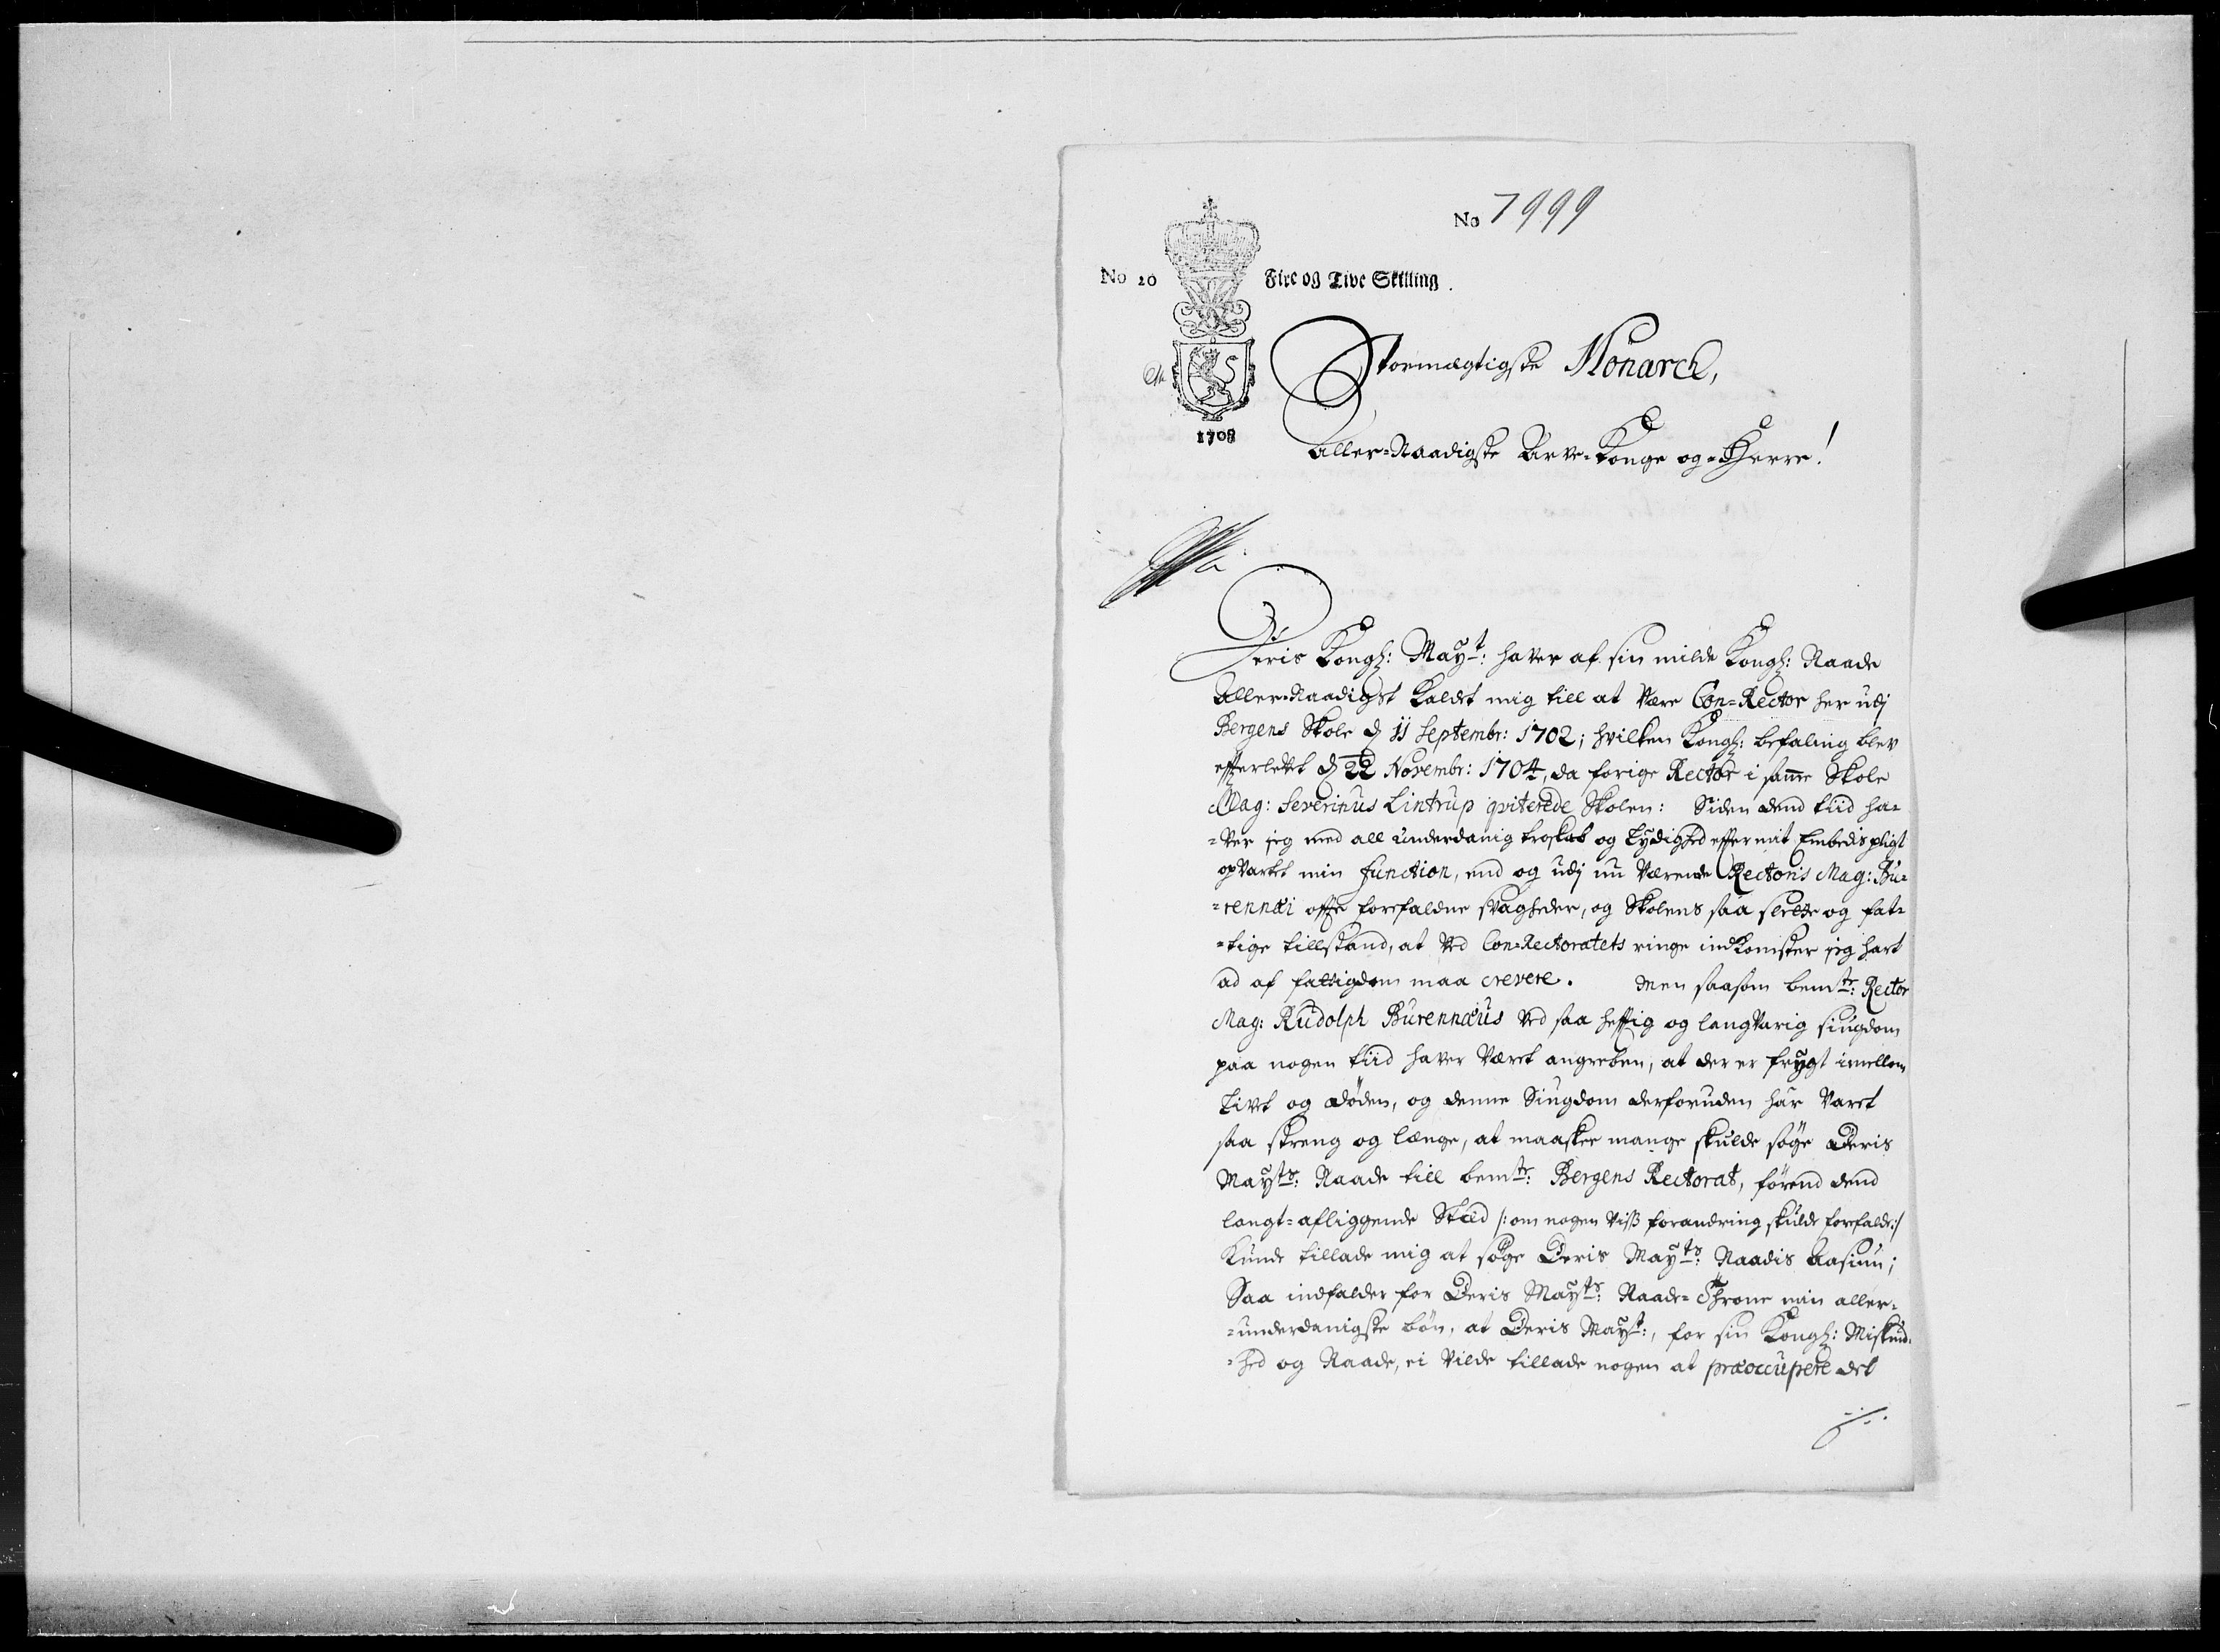 No 7999
No 20
Fire og Tive Skilling.
1708
Stormægtigste Monarch,
Aller-Naadigste Arve-Konge og-Herre!
Deris Kongl: Mayt: haver af sin milde Kongl: Naade
Aller-Naadigst kaldet mig till at være Con=Rector her udj
Bergens Skole d 11 Septembr: 1702; hvilken Kongl: befaling blev
efterlevet d 22 Novembr: 1704, da forige Rector i samme Skole
Mag: Severinus Lintrup qviterede Skolen: Siden dend tiid ha=
=ver jeg med all underdanig troskab og lydighed efter mit Embedis pligt
opvartet min function, end og udj nu værende Rectoris Mag: Bu=
=rennæi offte forefaldne svagheder, og Skolens saa slette og fat=
=tige tillstand, at ved Con=Rectoratets ringe indkomster jeg hart
ad af fattigdom maa crevere. Men saasom bemte: Rector
Mag: Rudolph Burennæus ved saa hefftig og langvarig siugdom
paa nogen tiid haver været angreben, at der er frygt imellem
livet og døden, og denne Siugdom derforuden har varet
saa streng og længe, at maaskee mange skulde søge Deris
Mayts: Naade till bemte: Bergens Rectorat, förend dend
langt=afliggende Stæd /: om nogen viss forandring skulde forefalde :/
kunde tillade mig at søge Deris Mayts: Naadis Aasiun;
Saa indfalder for Deris Mayts: Naade=Throne min aller=
=underdanigste bön, at Deris Mayt:, for sin Kongl: Miskund=
=hed og Naade, ei vilde tillade nogen at præoccupere det